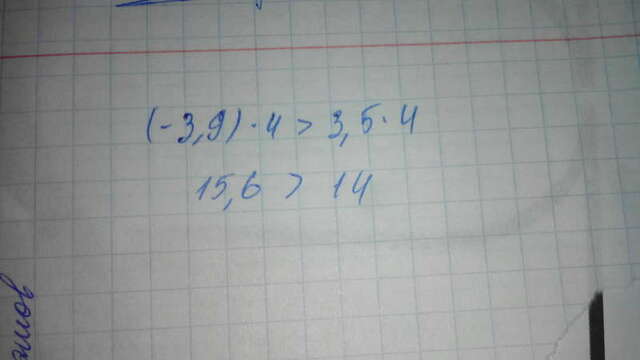 (-3,9) · 4 > 3,5 · 4
15,6 > 14